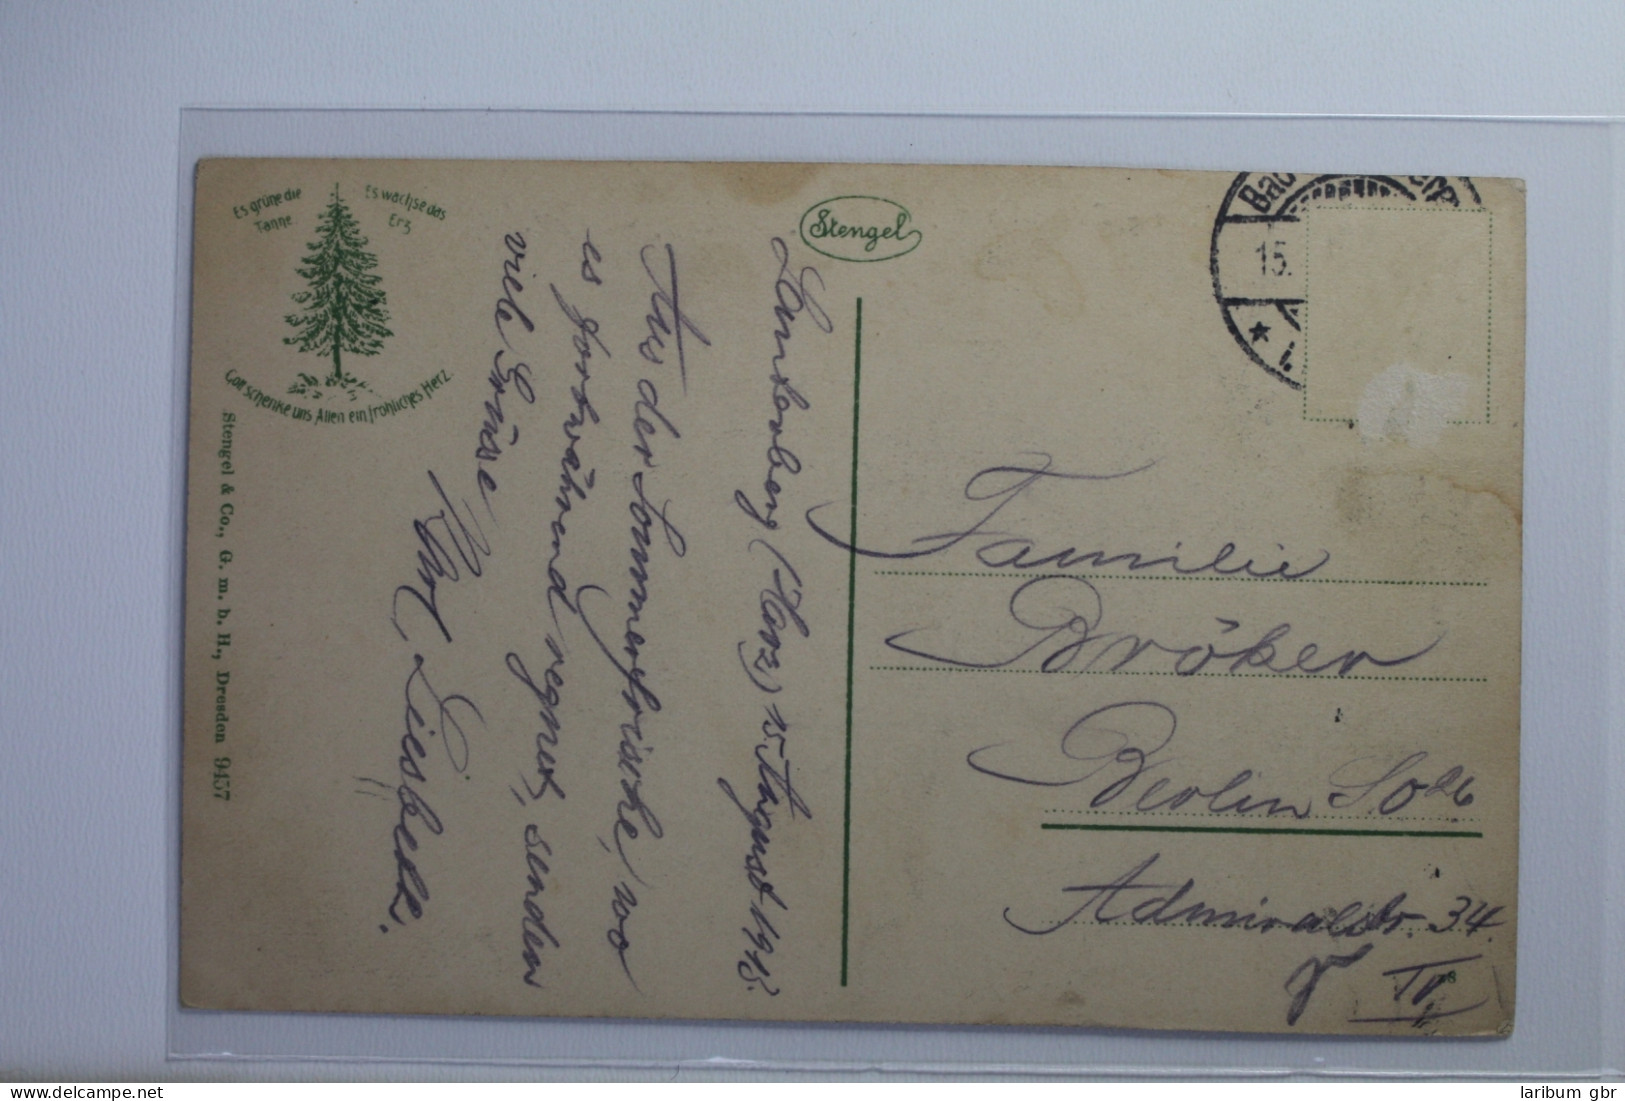 Es grüne die
Tanne
Es wachse das
Erz
Gott schenke uns Allen ein fröhliches Herz.
Stengel & Co., G. m. b. H., Dresden 9457
Stengel
Bad
15.
Lauterberg (Harz) 15. August 1918.
Aus der Sommerfrische, wo
es fortwährend regnet, senden
viele Grüsse
Liesbeth.
Familie
Bröker
Berlin So 26
Admiralstr. 34.
IV
laribum gbr